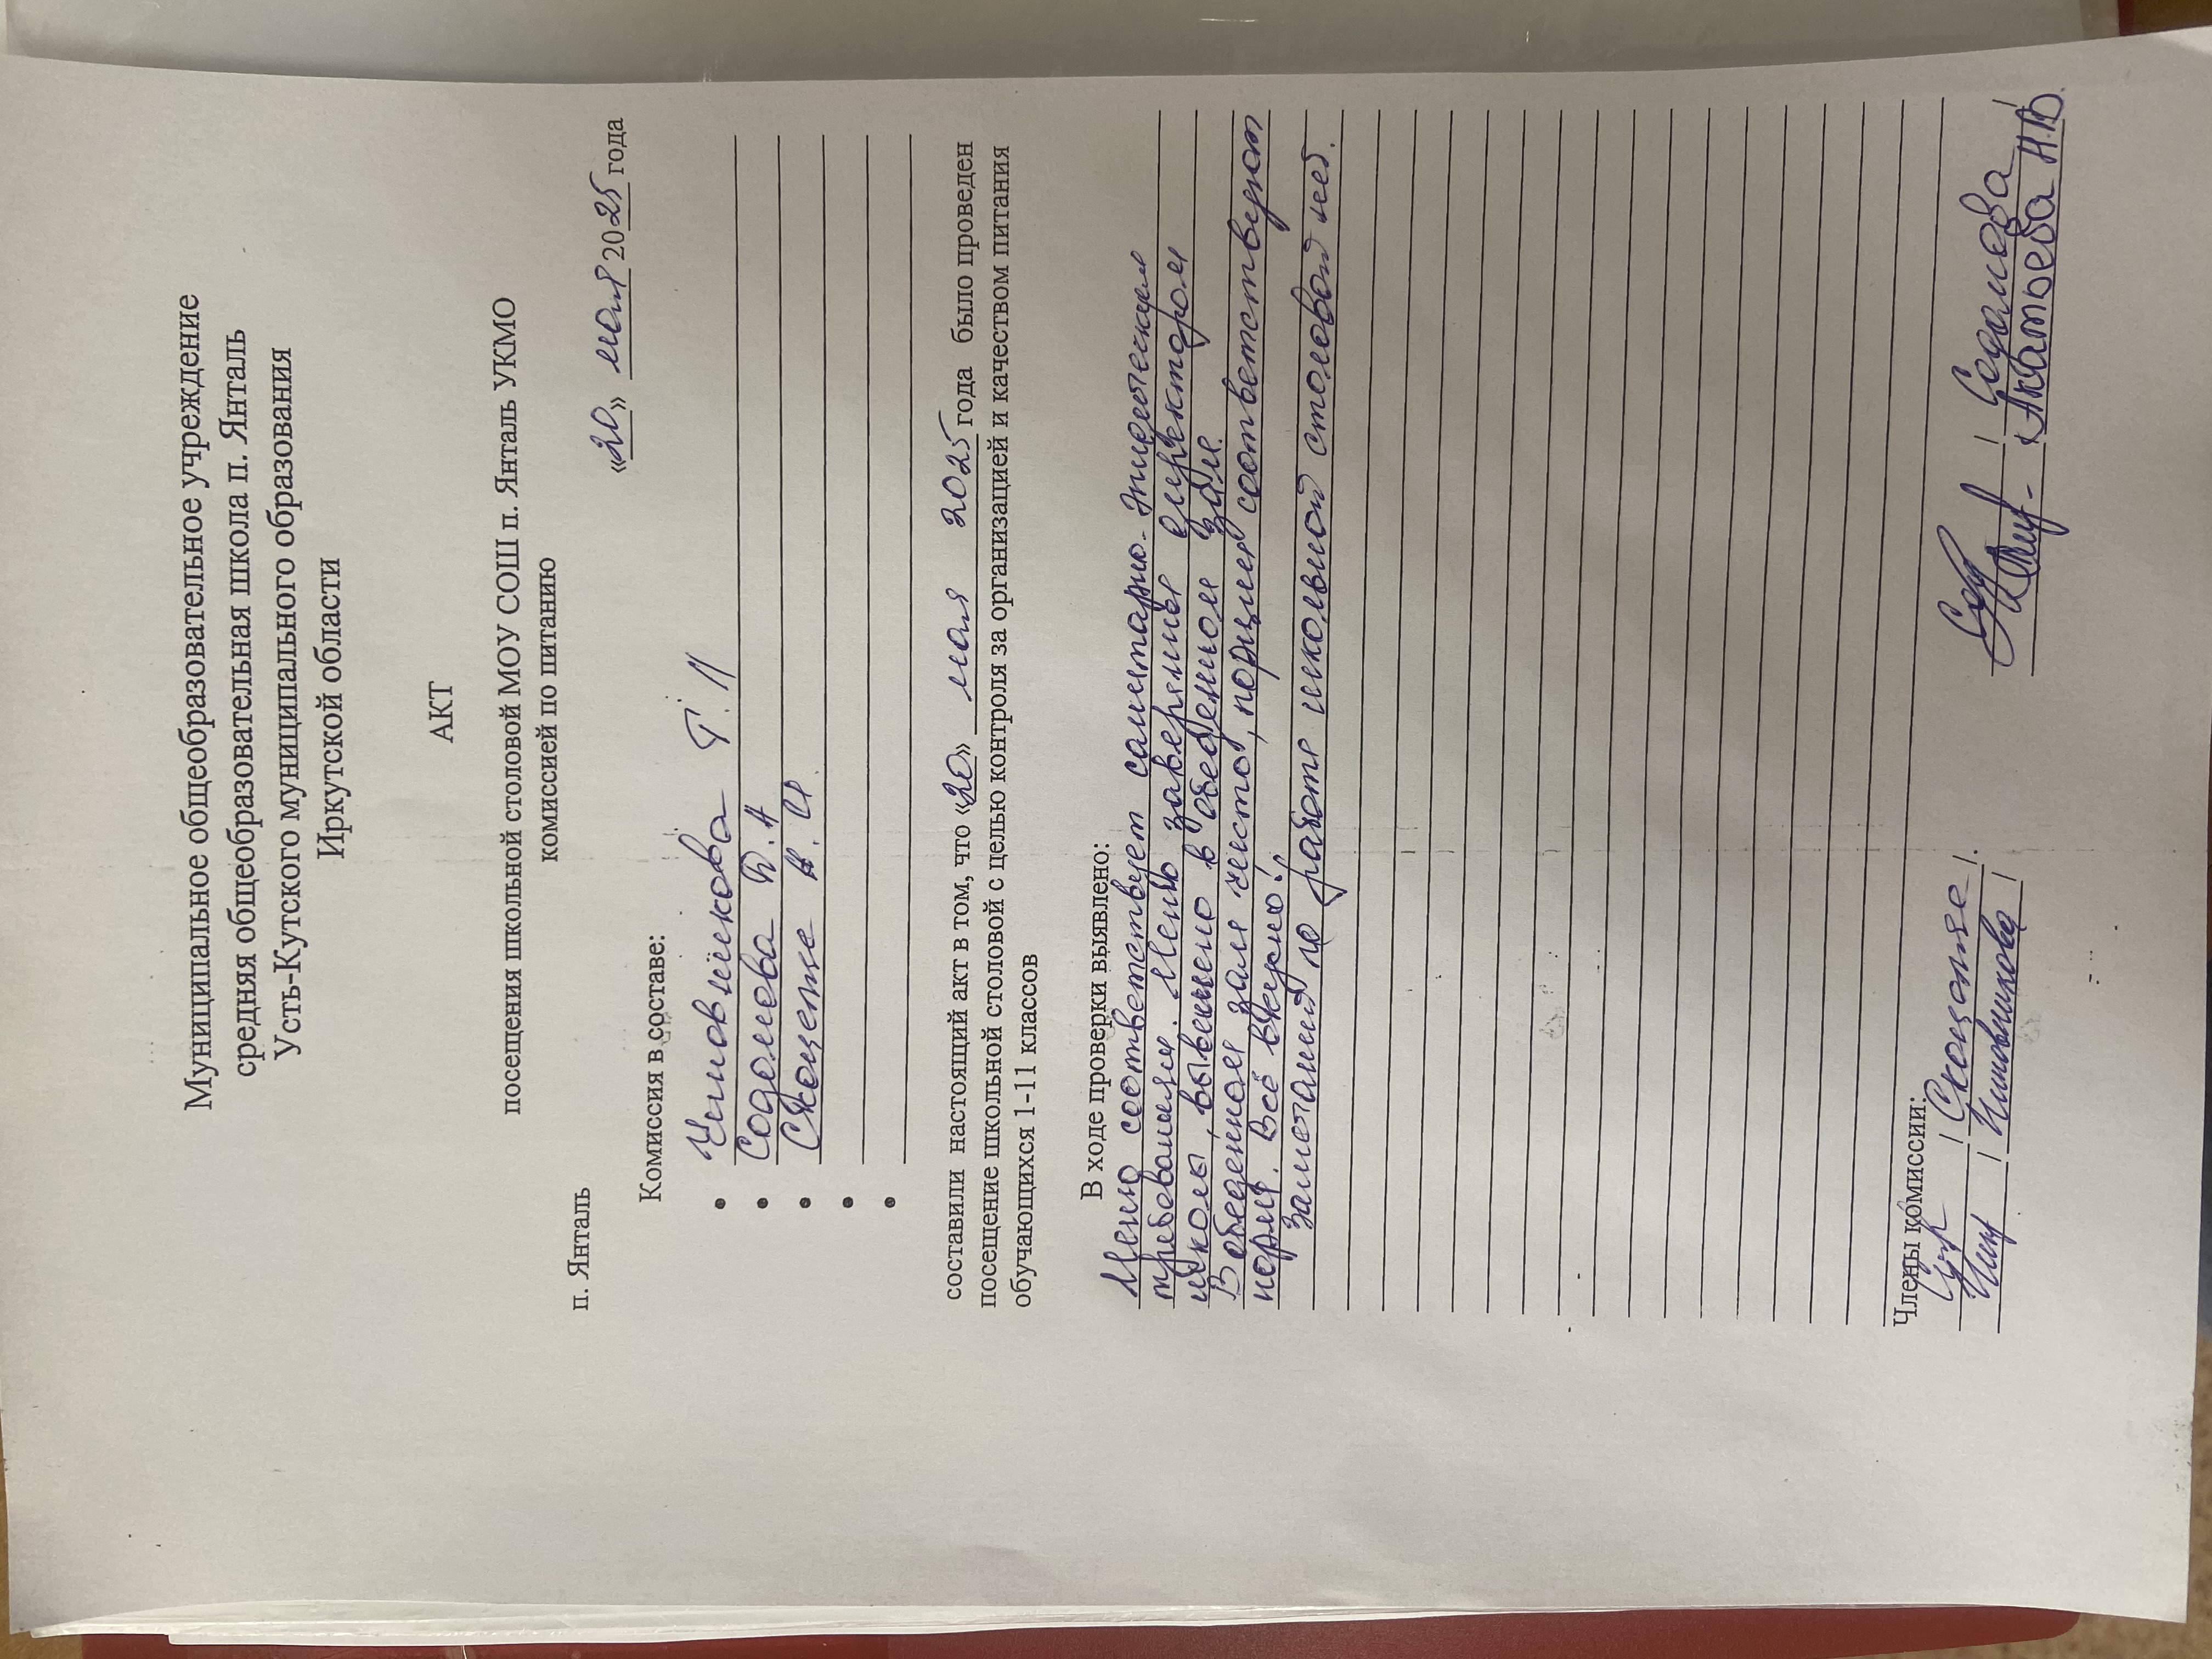 Муниципальное общеобразовательное учреждение
средняя общеобразовательная школа п. Янталь
Усть-Кутского муниципального образования
Иркутской области
АКТ
посещения школьной столовой МОУ СОШ п. Янталь УКМО
комиссией по питанию
п. Янталь
«20» мая 2025 года
Комиссия в составе:
• Т. П
• Содомова В. А
• Н. И.
•
•
составили настоящий акт в том, что «20» мая 2025 года было проведен
посещение школьной столовой с целью контроля за организацией и качеством питания
обучающихся 1-11 классов
В ходе проверки выявлено:
Меню соответствует санитарно-эпидемическим
требованиям. Меню заверенны директором
школы, вывешено в обеденном зале.
В обеденном зале чисто, порции соответствуют
норме. Всё вкусно!
Замечаний по работе школьной столовой нет.
Члены комиссии:
/ / / Содомова /
/ / Акатьева Н.В.